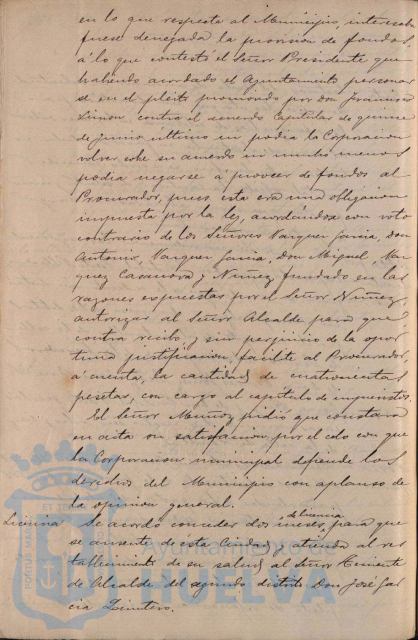 en lo que respecta al Municipio, interesaba
fuese denegada la provision de fondos
á lo que contestó el Señor Presidente que
habiendo acordado el Ayuntamiento personar
se en el pleito promovido por don Francisco
Limon contra el acuerdo Capitular de quince
de Junio último ni podia la Corporacion
volver sobre su acuerdo ni mucho menos
podia negarse á proveer de fondos al
Procurador, pues esta era una obligacion
impuesta por la ley, acordándose con voto
contrario de los Señores Vazquez Garcia, Don
Antonio, Vazquez Garcia, Don Miguel, Vaz
quez Casanova y Nuñez, fundado en las
razones espuestas por el Señor Nuñez,
autorizar al Señor Alcalde para que
contra recibo, y sin perjuicio de la opor
tuna justificacion, facilite al Procurador
á cuenta, la cantidad de cuatrocientas
pesetas, con cargo al capítulo de imprevistos.
El Señor Muñoz pidió que constara
en acta su satisfaccion por el celo con que
la Corporacion municipal defiende los
derechos del Municipio con aplauso de
la opinion general.
Licencia Se acordó conceder dos meses de licencia, para que
se ausente de esta Ciudad y atienda al res
tablecimiento de su salud al Señor Teniente
de Alcalde del segundo distrito Don José Gar
cia
Ayuntamiento de
HUELVA